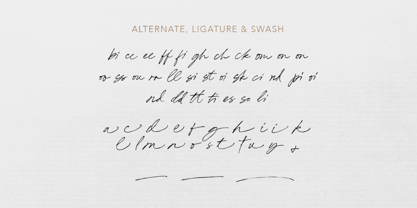 ALTERNATE, LIGATURE & SWASH
bi cc ee ff fi gh ch ck om on on
oo ss ou rr ll si st oi sk ci nd pi oi
nd dd tt ti es so li
a c d e f g h i i k
l l m n o s t t u y